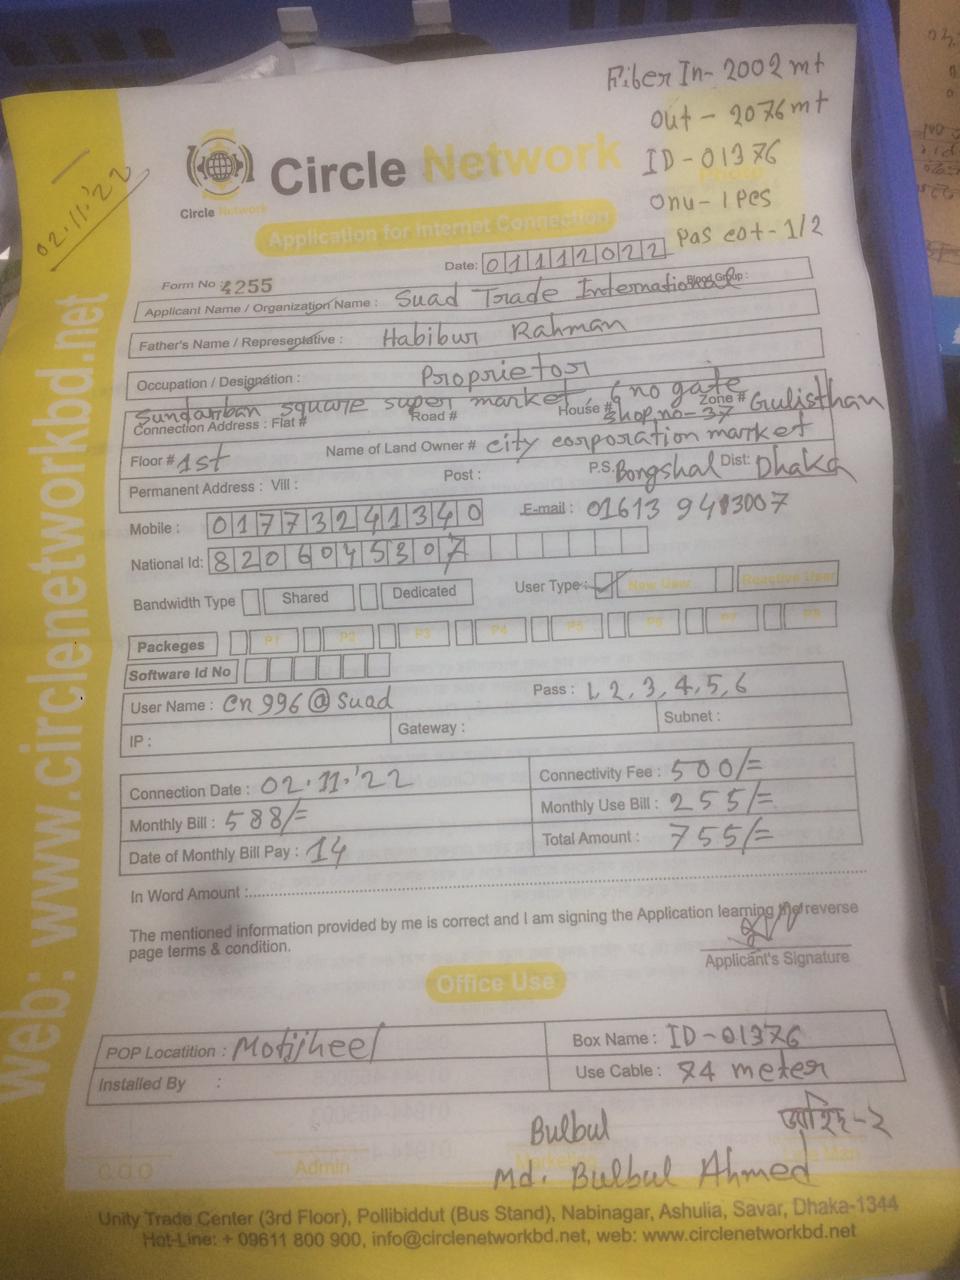 Fiber In- 2002 mt
out - 2076 mt
ID - 01376
onu - 1 pcs
02.11.'22
Circle Network
Circle Network
Application for Internet Connection
Photo
Date: 01112022
Form No : 4255
Blood Group :
Applicant Name / Organization Name : Suad Trade International
Father's Name / Representative : Habibur Rahman
Occupation / Designation : Proprietor
Sundarban square super market, 6 no gate
Connection Address : Flat # Road # House # shop no- 37 Zone # Gulisthan
Floor # 1st Name of Land Owner # city corporation market
Permanent Address : Vill : Post : P.S. Bongshal Dist: Dhaka
Mobile : 01773241340 E-mail : 01613 943007
National Id: 8206045307
Bandwidth Type Shared Dedicated User Type: New User Reactive User
Packeges P1 P2 P3 P4 P5 P6 P7 P8
Software Id No
User Name : cn996@suad Pass : 1, 2, 3, 4, 5, 6
IP : Gateway : Subnet :
Connection Date : 02.11.'22 Connectivity Fee : 500/=
Monthly Bill : 588/= Monthly Use Bill : 255/=
Date of Monthly Bill Pay : 14 Total Amount : 755/=
In Word Amount :
The mentioned information provided by me is correct and I am signing the Application learning the reverse
page terms & condition.
Applicant's Signature
Office Use
POP Locatition : Motijheel Box Name : ID-01376
Installed By : Use Cable : 74 meter
Bulbul
COO Admin Marketing Line Man
Md. Bulbul Ahmed
Unity Trade Center (3rd Floor), Pollibiddut (Bus Stand), Nabinagar, Ashulia, Savar, Dhaka-1344
Hot-Line: + 09611 800 900, info@circlenetworkbd.net, web: www.circlenetworkbd.net
web: www.circlenetworkbd.net